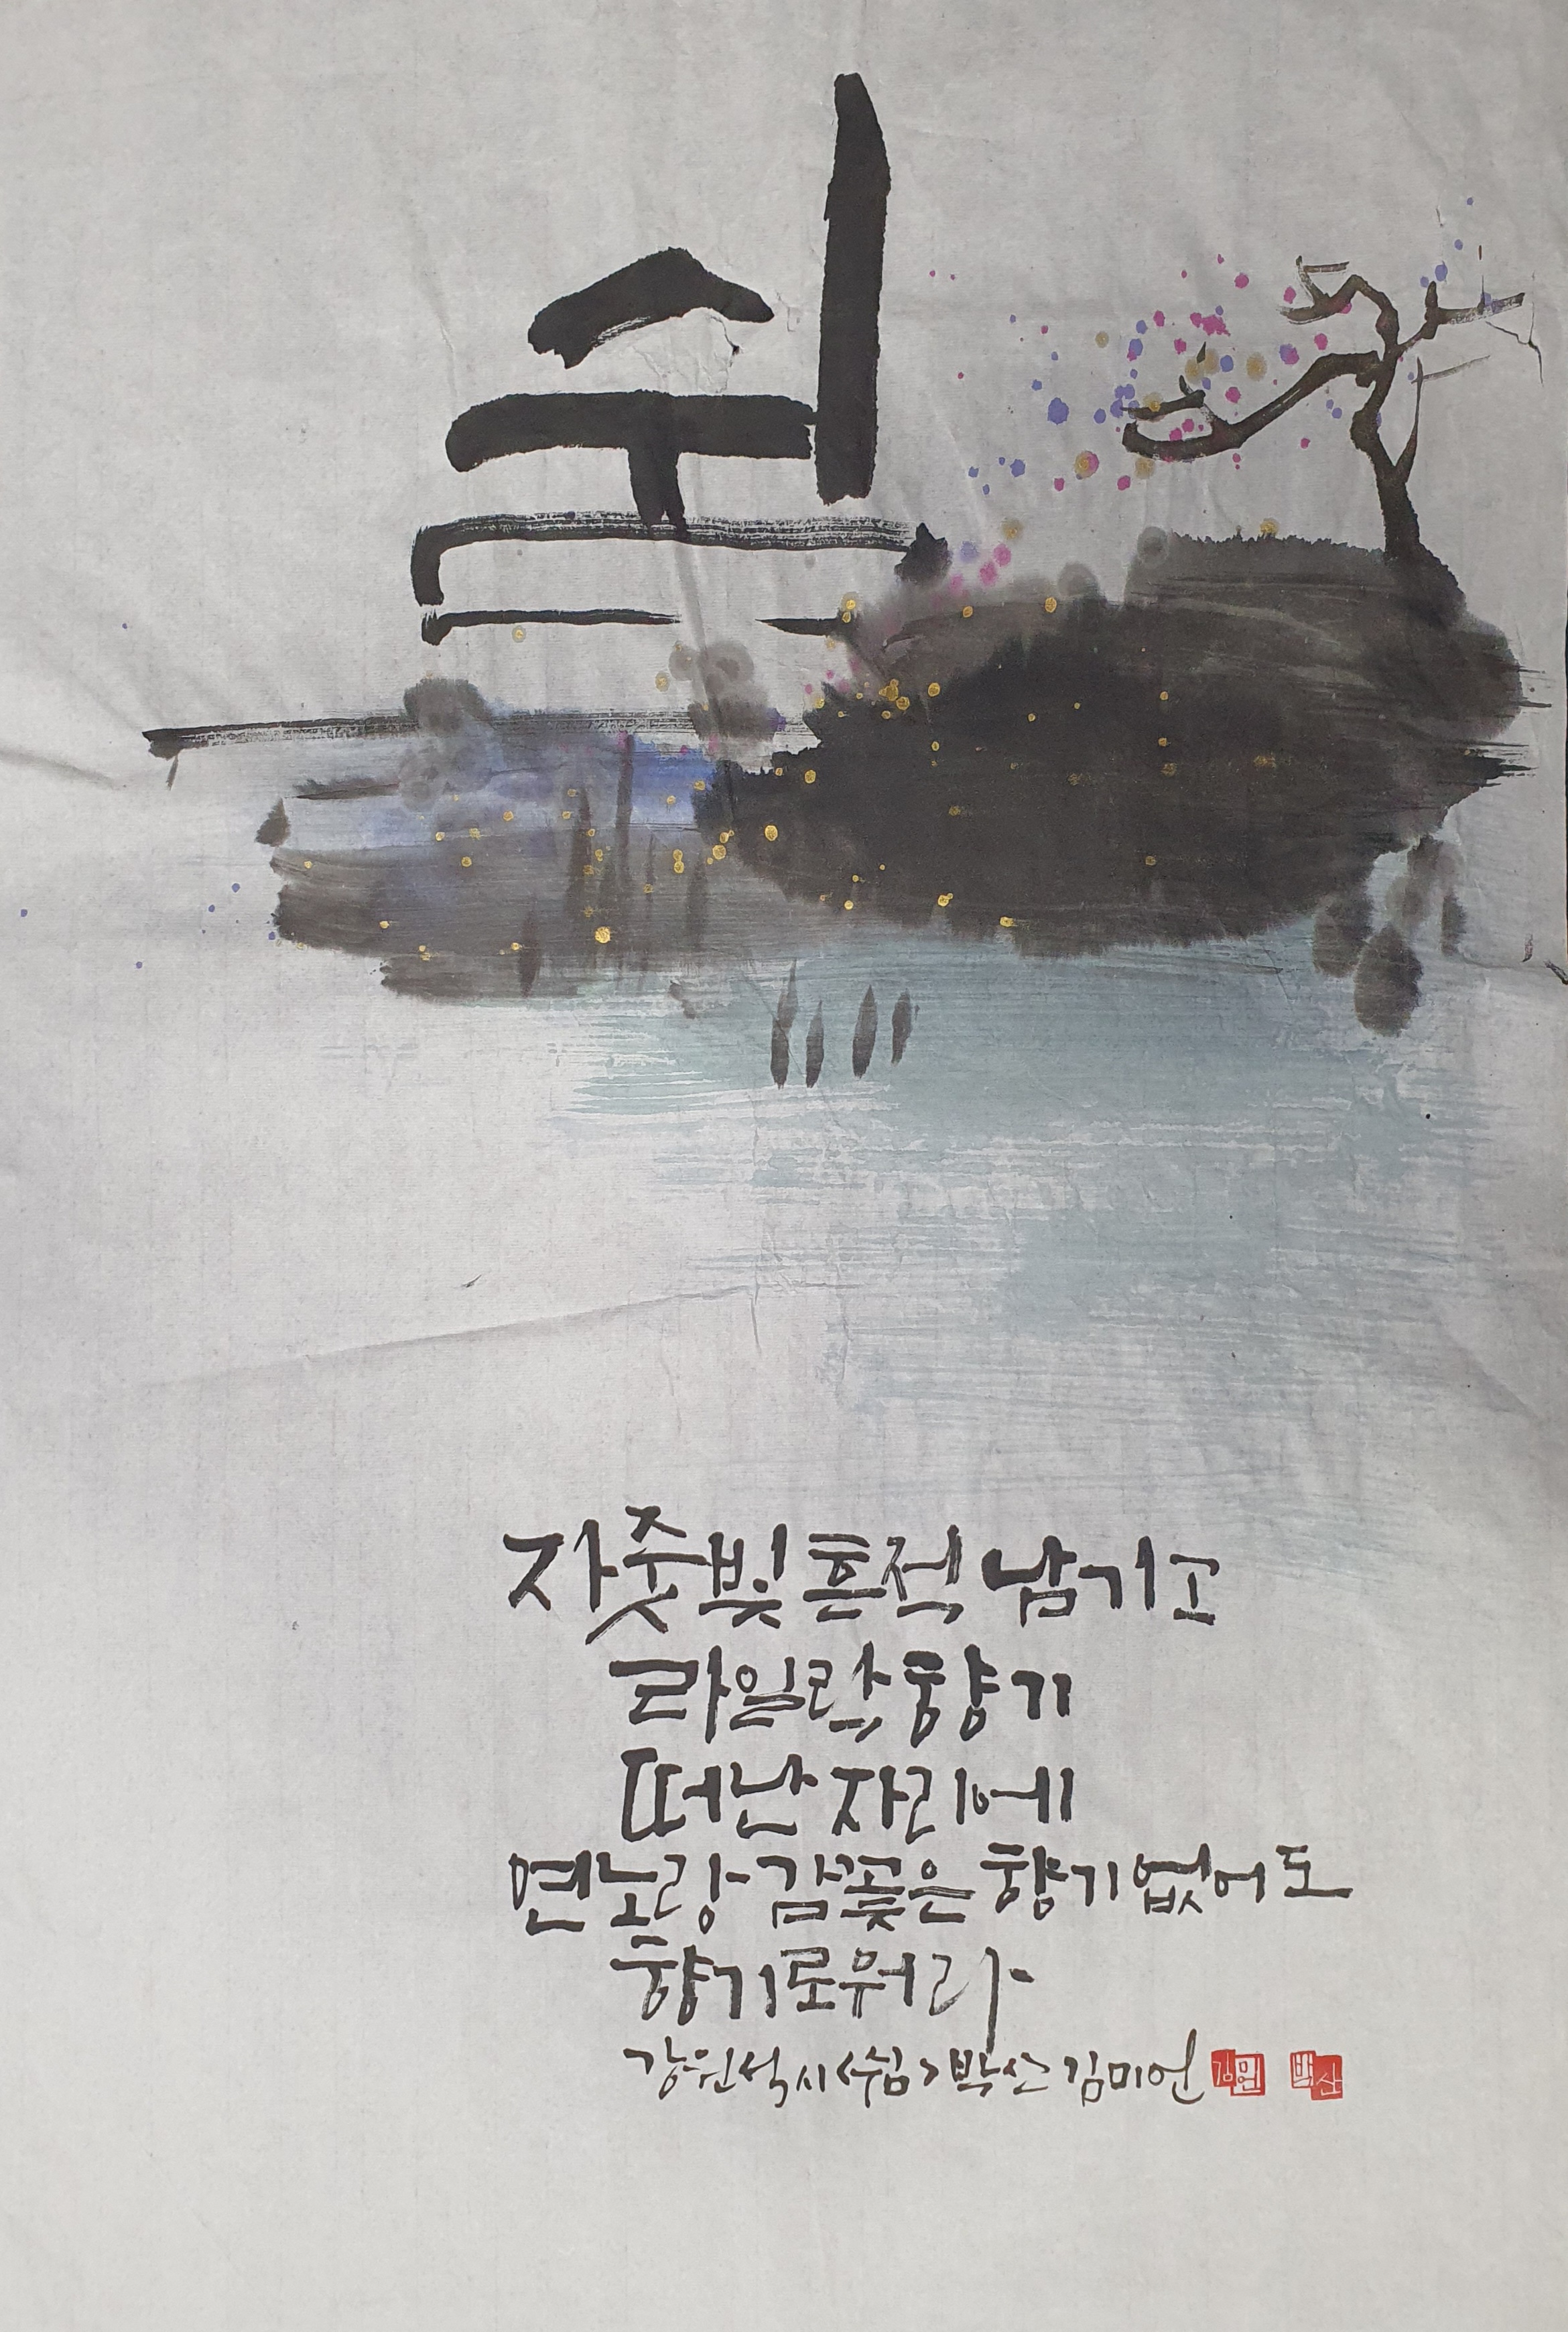 쉼
자줏빛 흔적 남기고
라일락 향기
떠난 자리에
연노랑 감꽃은 향기 없어도
향기로워라
강원석 시 <쉼>
백산